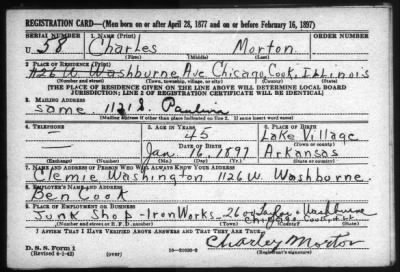 REGISTRATION CARD—(Men born on or after April 28, 1877 and on or before February 16, 1897)
SERIAL NUMBER 1. NAME (Print) ORDER NUMBER
U. 58 Charles Morton
(First) (Middle) (Last)
2. PLACE OF RESIDENCE (Print)
1126 W. Washburne Ave Chicago, Cook, Illinois
(Number and street) (Town, township, village, or city) (County) (State)
[THE PLACE OF RESIDENCE GIVEN ON THE LINE ABOVE WILL DETERMINE LOCAL BOARD
JURISDICTION; LINE 2 OF REGISTRATION CERTIFICATE WILL BE IDENTICAL]
3. MAILING ADDRESS
same. 1121 S. Paulina
[Mailing address if other than place indicated on line 2. If same insert word same]
4. TELEPHONE 5. AGE IN YEARS 6. PLACE OF BIRTH
— 45 Lake Village
DATE OF BIRTH (Town or county)
Jan 16 1897 Arkansas
(Exchange) (Number) (Mo.) (Day) (Yr.) (State or country)
7. NAME AND ADDRESS OF PERSON WHO WILL ALWAYS KNOW YOUR ADDRESS
Clemie Washington 1126 W. Washburne
8. EMPLOYER'S NAME AND ADDRESS
Ben Cook
9. PLACE OF EMPLOYMENT OR BUSINESS
Junk Shop - Iron Works - Washburne
Chicago
(Number and street or R. F. D. number) (Town) (County) (State)
I AFFIRM THAT I HAVE VERIFIED ABOVE ANSWERS AND THAT THEY ARE TRUE.
D. S. S. Form 1
(Revised 4-1-42) (over) Charley Morton